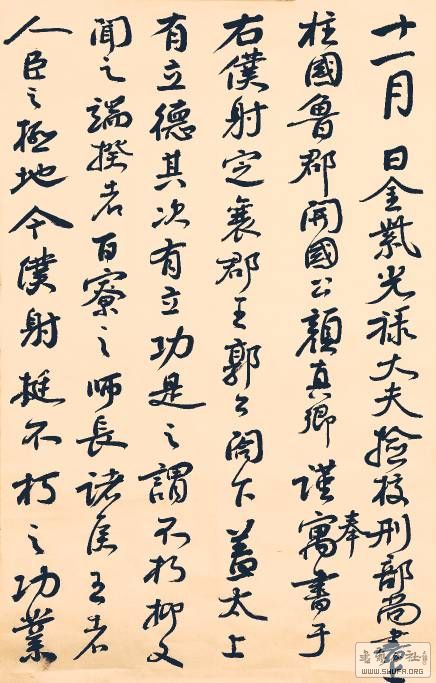 十一月 日金紫光祿大夫撿校刑部尚書上
柱國魯郡開國公顏真卿謹奉寓書于
右僕射定襄郡王郭公閤下蓋太上
有立德其次有立功是之謂不朽抑又
聞之端揆者百寮之師長諸侯王者
人臣之極地今僕射挺不朽之功業
WWW.SHUFA.ORG